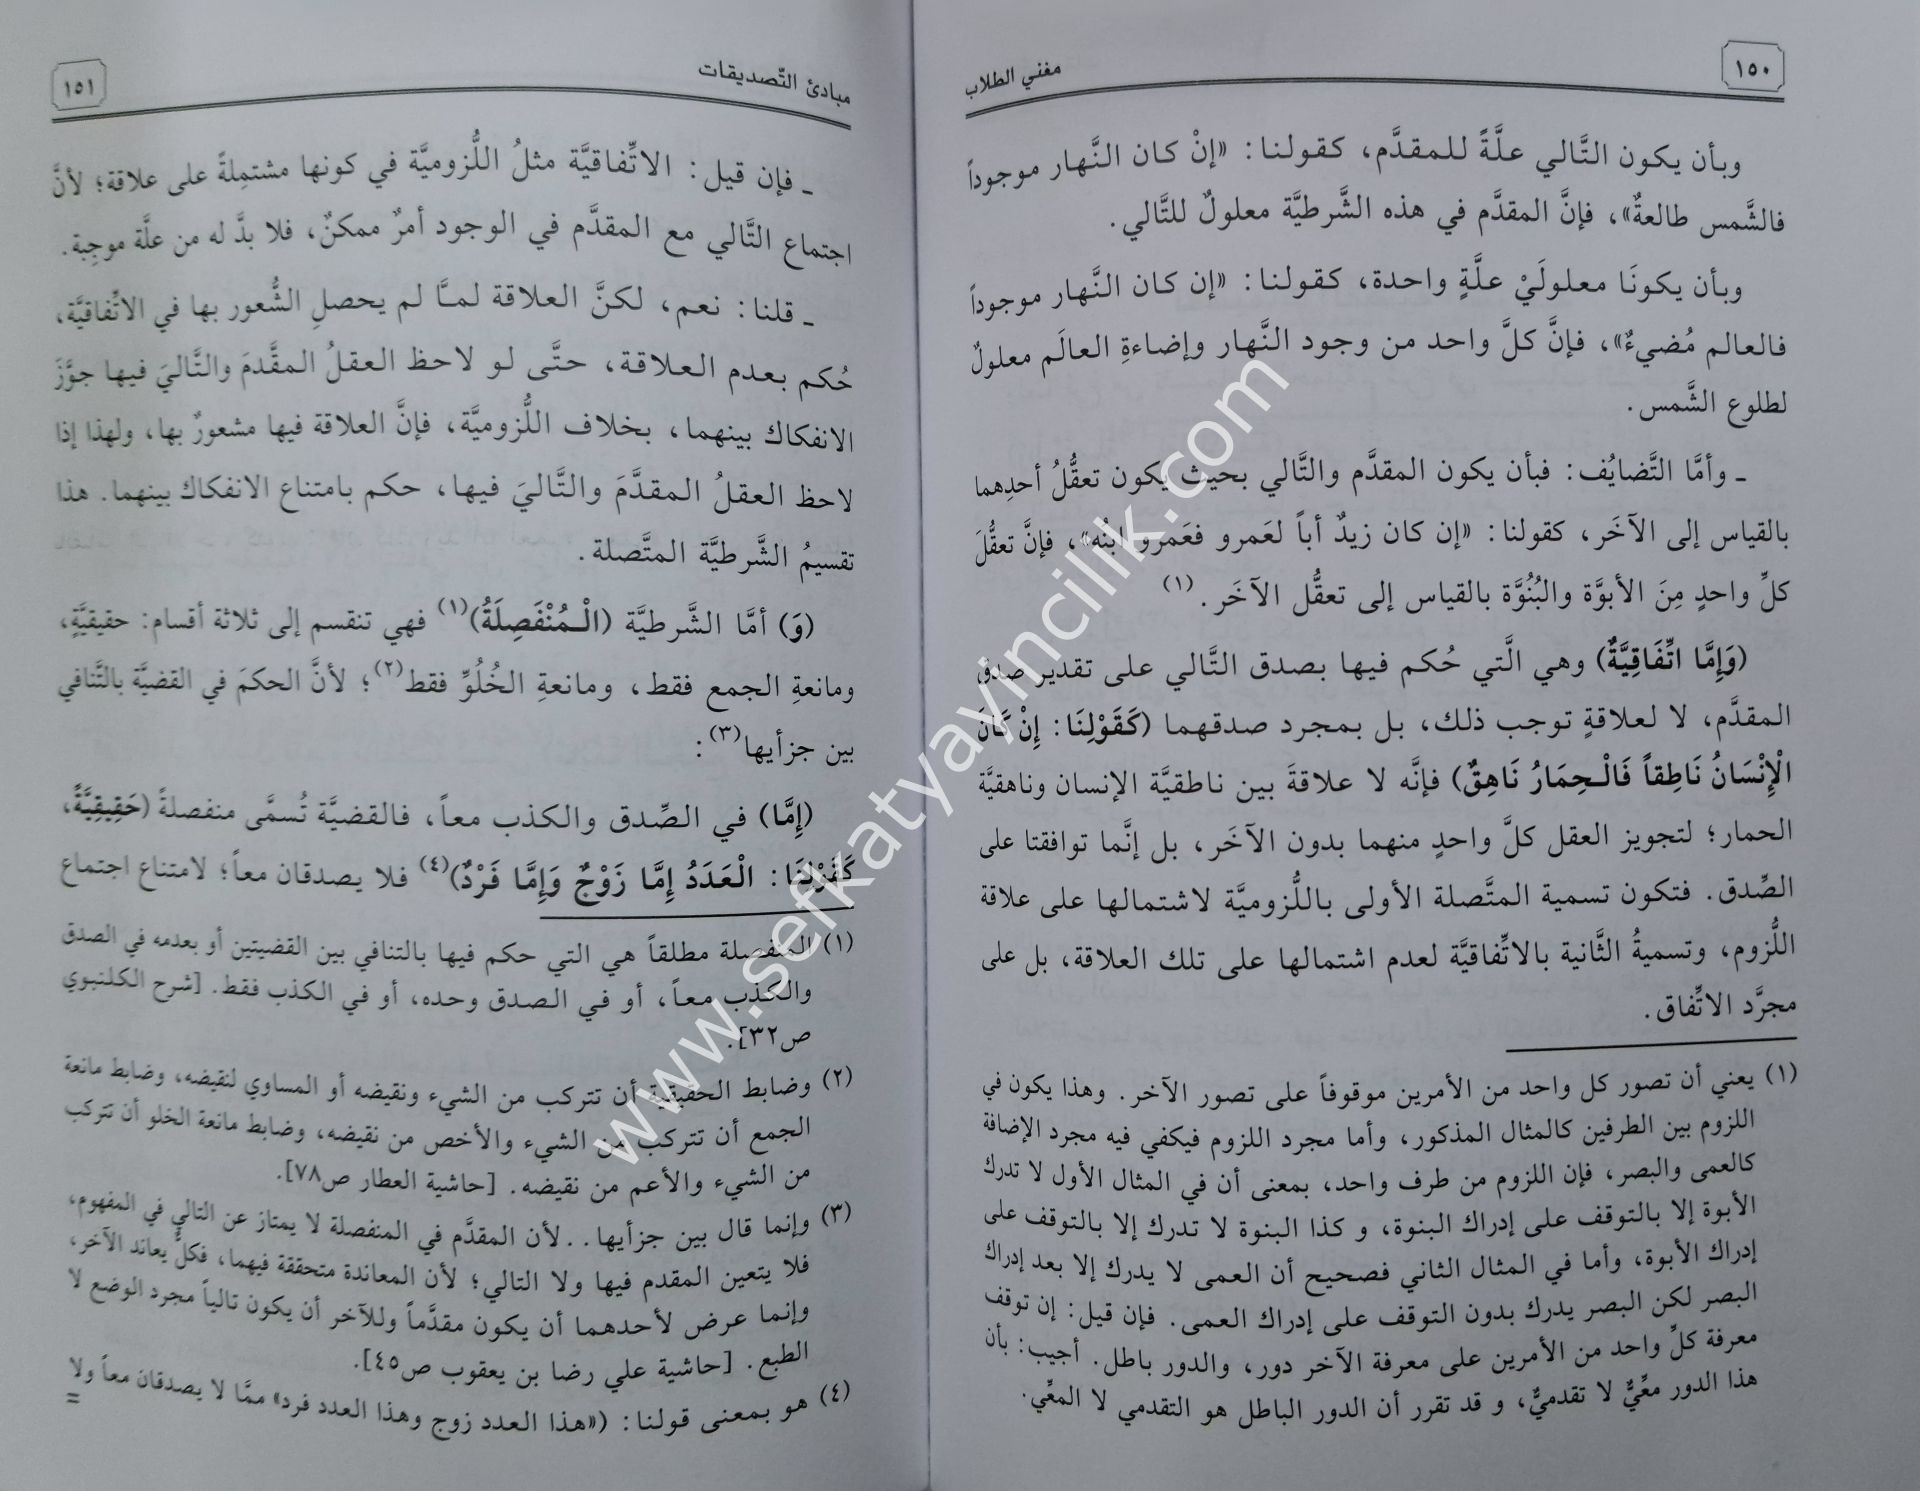 ١٥٠
مغني الطلاب
وبأن يكون التَّالي علَّةً للمقدَّم، كقولنا: «إنْ كان النَّهار موجوداً
فالشَّمس طالعةٌ»، فإنَّ المقدَّم في هذه الشَّرطيَّة معلولٌ للتَّالي.
وبأن يكونَا معلولَيْ علَّةٍ واحدة، كقولنا: «إن كان النَّهار موجوداً
فالعالم مُضيءٌ»، فإنَّ كلَّ واحد من وجود النَّهار وإضاءةِ العالَم معلولٌ
لطلوع الشَّمس.
ـ وأمَّا التَّضايُف: فبأن يكون المقدَّم والتَّالي بحيث يكون تعقُّلُ أحدِهما
بالقياس إلى الآخَر، كقولنا: «إن كان زيدٌ أباً لعَمرو فعَمرو ابنُه»، فإنَّ تعقُّلَ
كلِّ واحدٍ مِنَ الأبوَّة والبُنُوَّة بالقياس إلى تعقُّل الآخَر.(١)
(وَإِمَّا اتِّفَاقِيَّةٌ) وهي الَّتي حُكم فيها بصدق التَّالي على تقدير صدق
المقدَّم، لا لعلاقةٍ توجب ذلك، بل بمجرد صدقهما (كَقَوْلِنَا: إِنْ كَانَ
الْإِنْسَانُ نَاطِقاً فَالْحِمَارُ نَاهِقٌ) فإنَّه لا علاقةَ بين ناطقيَّة الإنسان وناهقيَّة
الحمار؛ لتجويز العقل كلَّ واحدٍ منهما بدون الآخَر، بل إنَّما توافقتا على
الصِّدق. فتكون تسمية المتَّصلة الأولى باللُّزوميَّة لاشتمالها على علاقة
اللُّزوم، وتسميةُ الثَّانية بالاتِّفاقيَّة لعدم اشتمالها على تلك العلاقة، بل على
مجرَّد الاتِّفاق.
(١) يعني أن تصور كل واحد من الأمرين موقوفاً على تصور الآخر. وهذا يكون في
اللزوم بين الطرفين كالمثال المذكور، وأما مجرد اللزوم فيكفي فيه مجرد الإضافة
كالعمى والبصر، فإن اللزوم من طرف واحد، بمعنى أن في المثال الأول لا تدرك
الأبوة إلا بالتوقف على إدراك البنوة، و كذا البنوة لا تدرك إلا بالتوقف على
إدراك الأبوة، وأما في المثال الثاني فصحيح أن العمى لا يدرك إلا بعد إدراك
البصر لكن البصر يدرك بدون التوقف على إدراك العمى. فإن قيل: إن توقف
معرفة كلِّ واحد من الأمرين على معرفة الآخر دور، والدور باطل. أجيب: بأن
هذا الدور معِّيٌّ لا تقدميٌّ، و قد تقرر أن الدور الباطل هو التقدمي لا المعِّي.
مبادئ التّصديقات
١٥١
ـ فإن قيل: الاتِّفاقيَّة مثلُ اللُّزوميَّة في كونها مشتمِلةً على علاقة؛ لأنَّ
اجتماع التَّالي مع المقدَّم في الوجود أمرٌ ممكنٌ، فلا بدَّ له من علَّة موجِبة.
ـ قلنا: نعم، لكنَّ العلاقة لمـَّا لم يحصلِ الشُّعور بها في الاتِّفاقيَّة،
حُكم بعدم العلاقة، حتَّى لو لاحظ العقلُ المقدَّمَ والتَّاليَ فيها جوَّزَ
الانفكاك بينهما، بخلاف اللُّزوميَّة، فإنَّ العلاقة فيها مشعورٌ بها، ولهذا إذا
لاحظ العقلُ المقدَّمَ والتَّاليَ فيها، حكم بامتناع الانفكاك بينهما. هذا
تقسيمُ الشَّرطيَّة المتَّصلة.
(وَ) أمَّا الشَّرطيَّة (الْمُنْفَصِلَةُ)(١) فهي تنقسم إلى ثلاثة أقسام: حقيقيَّةٍ،
ومانعةِ الجمع فقط، ومانعةِ الخُلُوِّ فقط(٢)؛ لأنَّ الحكمَ في القضيَّة بالتَّنافي
بين جزأيها(٣):
(إِمَّا) في الصِّدق والكذب معاً، فالقضيَّة تُسمَّى منفصلةً (حَقِيقِيَّةً،
كَقَوْلِنَا: الْعَدَدُ إِمَّا زَوْجٌ وَإِمَّا فَرْدٌ)(٤) فلا يصدقان معاً؛ لامتناع اجتماع
(١) المنفصلة مطلقاً هي التي حكم فيها بالتنافي بين القضيتين أو بعدمه في الصدق
والكذب معاً، أو في الصدق وحده، أو في الكذب فقط. [شرح الكلنبوي
ص٣٢].
(٢) وضابط الحقيقية أن تتركب من الشيء ونقيضه أو المساوي لنقيضه، وضابط مانعة
الجمع أن تتركب من الشيء والأخص من نقيضه، وضابط مانعة الخلو أن تتركب
من الشيء والأعم من نقيضه. [حاشية العطار ص٧٨].
(٣) وإنما قال بين جزأيها.. لأن المقدَّم في المنفصلة لا يمتاز عن التالي في المفهوم،
فلا يتعين المقدم فيها ولا التالي؛ لأن المعاندة متحققة فيهما، فكلٌّ يعاند الآخر،
وإنما عرض لأحدهما أن يكون مقدَّماً وللآخر أن يكون تالياً مجرد الوضع لا
الطبع. [حاشية علي رضا بن يعقوب ص٤٥].
(٤) هو بمعنى قولنا: («هذا العدد زوج وهذا العدد فرد» ممَّا لا يصدقان معاً ولا
=
www.sefkatyayincilik.com